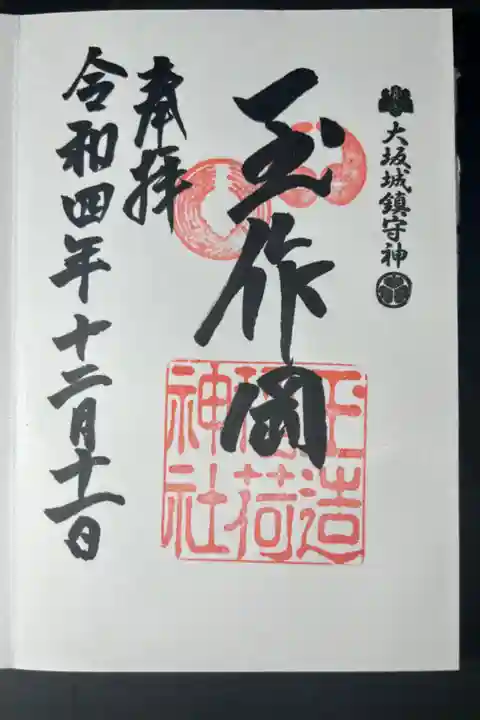 大坂城鎮守神
玉作岡
玉造
稲荷
神社
奉拝
令和四年十二月十一日